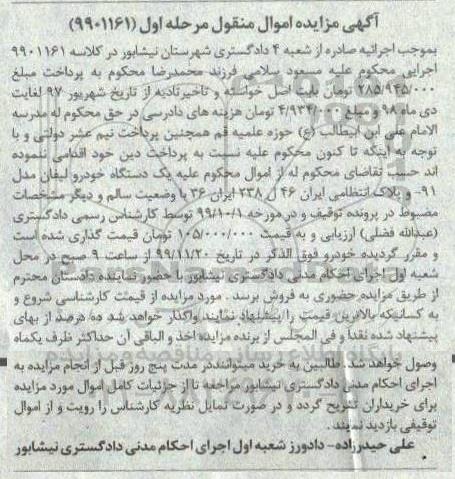 آگهی مزایده اموال منقول مرحله اول (۹۹۰۱۱۶۱)
بموجب اجرائیه صادره از شعبه ۴ دادگستری شهرستان نیشابور در کلاسه ۹۹۰۱۱۶۱
اجرایی محکوم علیه مسعود سلامی فرزند محمدرضا محکوم به پرداخت مبلغ
۲۸۵/۹۴۵/۰۰۰ تومان بابت اصل خواسته و تاخیرتادیه از تاریخ شهریور ۹۷ لغایت
دی ماه ۹۸ و مبلغ ۴/۹۳۴/۰۰۰ تومان هزینه های دادرسی در حق محکوم له مدرسه
الامام علی ابن ابیطالب (ع) حوزه علمیه قم همچنین پرداخت نیم عشر دولتی و با
توجه به اینکه تا کنون محکوم علیه نسبت به پرداخت دین خود اقدامی ننموده
اند حسب تقاضای محکوم له از اموال محکوم علیه یک دستگاه خودرو لیفان مدل
۹۱- و پلاک انتظامی ایران ۴۶ ل ۲۳۸ ایران ۳۶ با وضعیت سالم و دیگر مشخصات
مضبوط در پرونده توقیف و در مورخه ۹۹/۱۰/۱ توسط کارشناس رسمی دادگستری
(عبدالله فضلی) ارزیابی و به قیمت ۱۰۵/۰۰۰/۰۰۰ تومان قیمت گذاری شده است
و مقرر گردیده خودرو فوق الذکر در تاریخ ۹۹/۱۱/۲۰ از ساعت ۹ صبح در محل
شعبه اول اجرای احکام مدنی دادگستری نیشابور با حضور نماینده دادستان محترم
از طریق مزایده حضوری به فروش برسد . مورد مزایده از قیمت کارشناسی شروع و
به کسانیکه بالاترین قیمت را پیشنهاد نمایند واگذار خواهد شد ده درصد از بهای
پیشنهاد شده نقداً و فی المجلس از برنده مزایده اخذ و الباقی آن حداکثر ظرف یکماه
وصول خواهد شد. طالبین به خرید میتوانند در مدت پنج روز قبل از انجام مزایده به
اجرای احکام مدنی دادگستری نیشابور مراجعه تا از جزئیات کامل اموال مورد مزایده
برای خریداران تشریح گردد و در صورت تمایل نظریه کارشناس را رویت و از اموال
توقیفی بازدید نمایند.
علی حیدرزاده- دادورز شعبه اول اجرای احکام مدنی دادگستری نیشابور